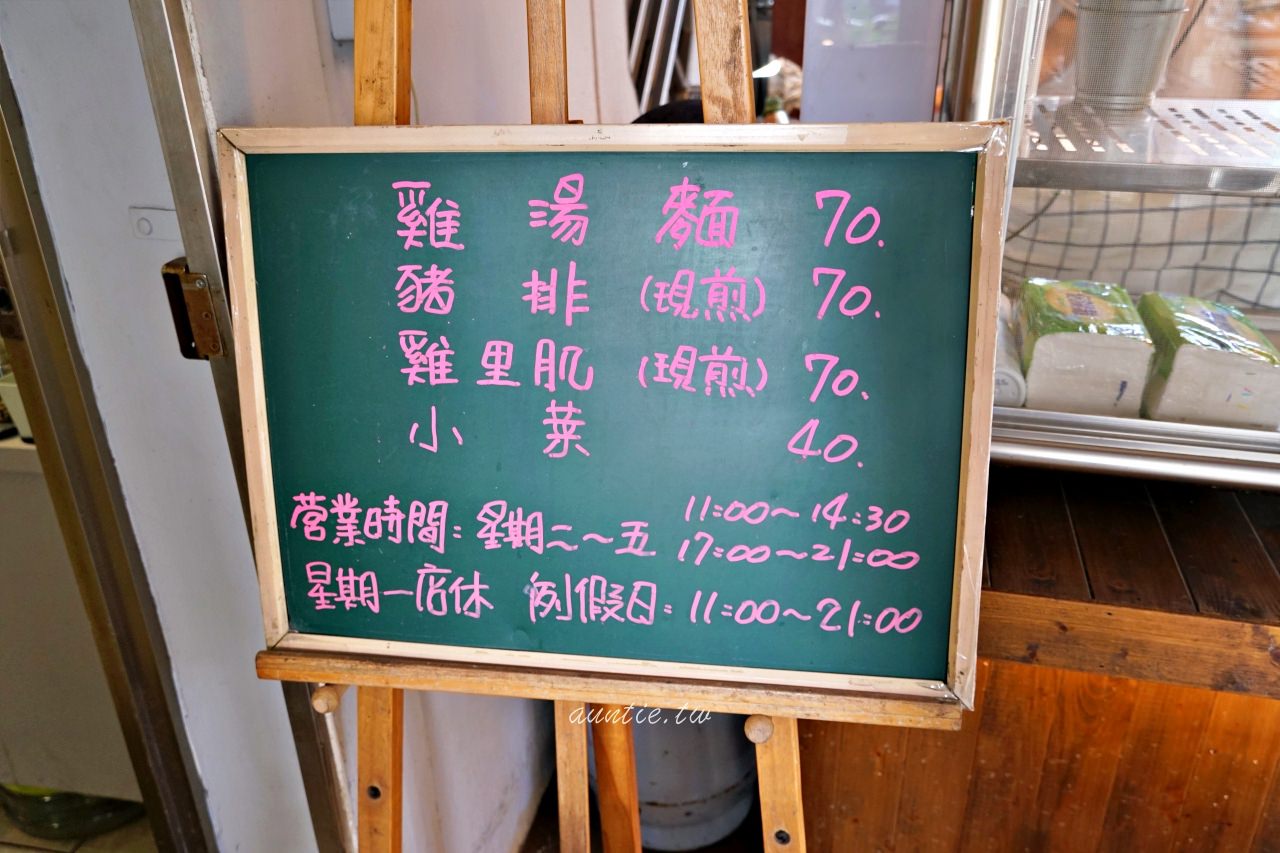 雞湯麵 70.
豬排(現煎) 70.
雞里肌(現煎) 70.
小菜 40.
營業時間:星期二~五 11:00~14:30
17:00~21:00
星期一店休 例假日:11:00~21:00
auntie.tw